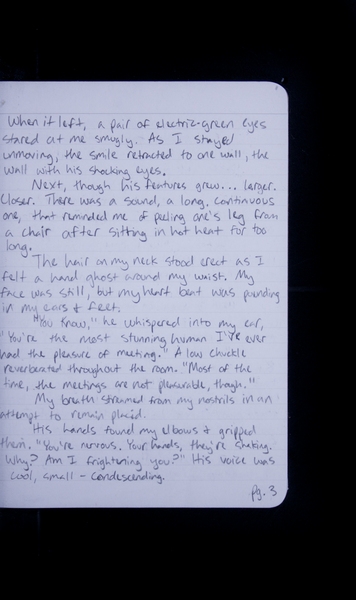 When it left, a pair of electric-green eyes
stared at me smugly. As I stayed
unmoving, the smile retracted to one wall, the
wall with his shocking eyes.
Next, though his features grew... larger.
Closer. There was a sound, a long, continuous
one, that reminded me of peeling one's leg from
a chair after sitting in hot heat for too
long.
The hair on my neck stood erect as I
felt a hand ghost around my waist. My
face was still, but my heart beat was pounding
in my ears & feet.
"You know," he whispered into my ear,
"You're the most stunning human I've ever
had the pleasure of meeting." A low chuckle
reverberated throughout the room. "Most of the
time, the meetings are not pleasurable, though."
My breath streamed from my nostrils in an
attempt to remain placid.
His hands found my elbows & gripped
them. "You're nervous. Your hands, they're shaking.
Why? Am I frightening you?" His voice was
cool, small - condescending.
pg. 3